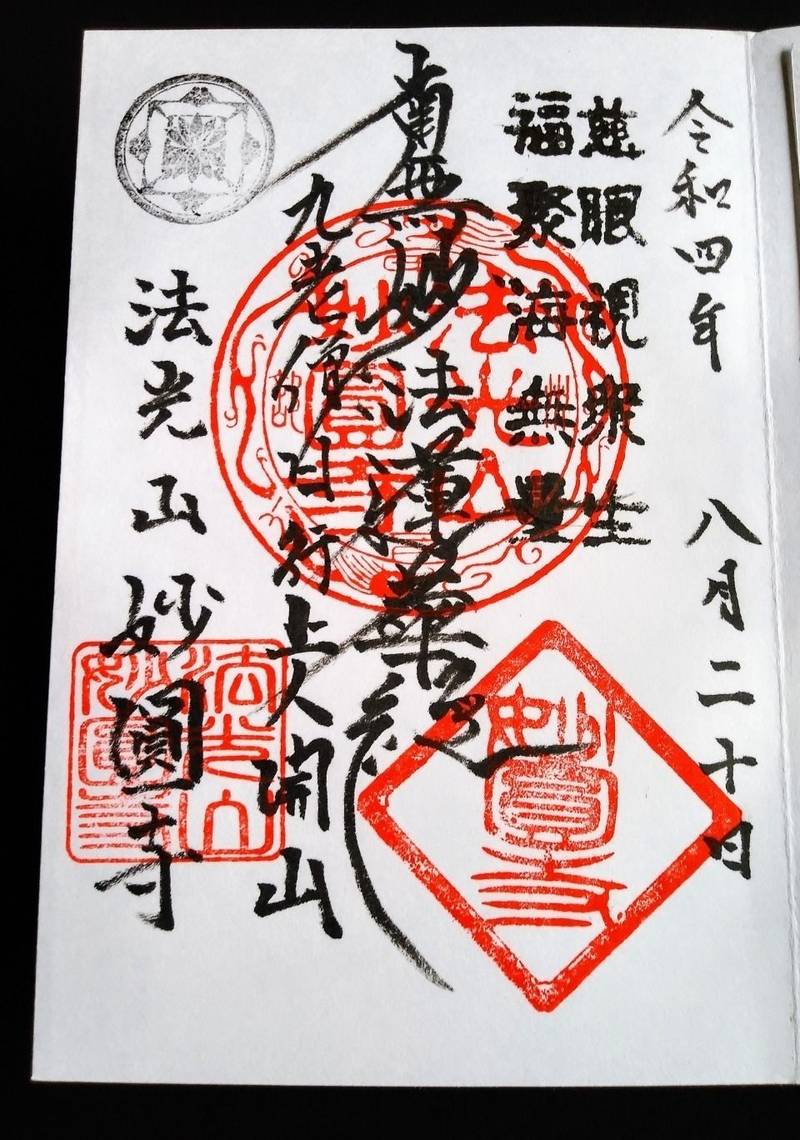 令和四年 八月二十日
慈眼視衆生
福聚海無量
南無妙法蓮華経
九老僧日行上人開山
法光山 妙圓寺
法光山
妙圓寺
妙圓寺
法光山
妙圓寺